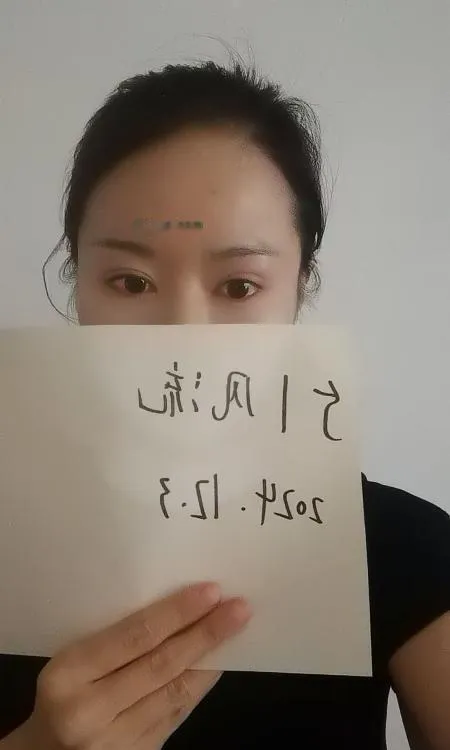 引风流
2024.12.3